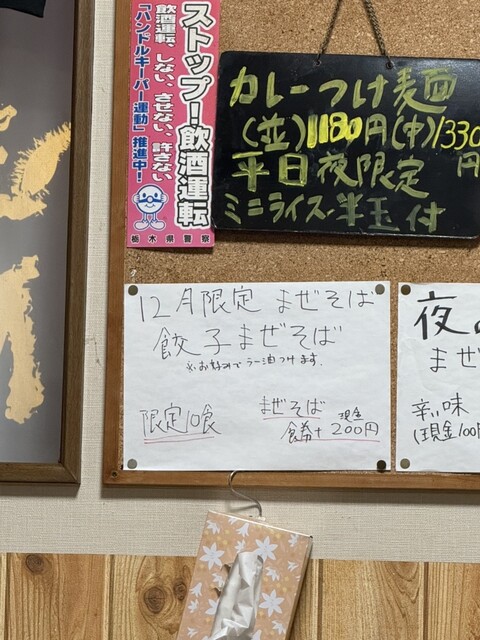 ストップ!飲酒運転
飲酒運転、しない、させない、許さない
「ハンドルキーパー運動」推進中!
栃木県警察
カレーつけ麺
(並)1180円(中)1330円
平日夜限定
ミニライス・半玉付
12月限定 まぜそば
餃子まぜそば
※お好みでラー油つけます.
限定10食
まぜそば
食券+現金200円
夜
まぜ
辛い味
(現金100円